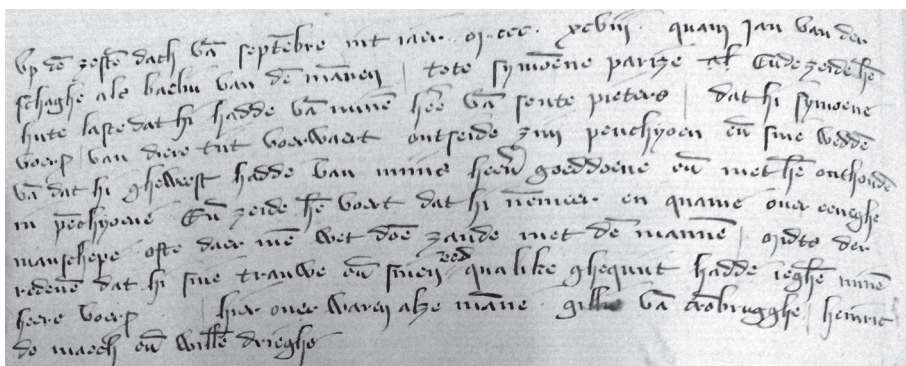 up dē zestē dach vā septēbre int iaer m ccc xcviii quam Jan van der
schaghe als bailiu van dē mānen tote symoene parize Ende zeide hē
hute laste dat hi hadde vā minē hēe vā sente pieters dat hi symoene
voerß van diere tijt voerwaert ontseide zijn penchyoen eñ sine wedde
vā dat hi ghewest hadde van mins heerē goeddoene eñ met hē onthoudē
in pēchyoene Eñ zeide hē voert dat hi nēmeer en quame over eeneghe
manschepe ofte daer mē wet doē zaude met dē mannē mids der
redenē dat hi sine trauwe eñ sinen eed qualike ghequijt hadde ieghē minē
heere voerß hier over waren alze māne gill vā crōbrugghe heinric
de maech eñ willē drieghe